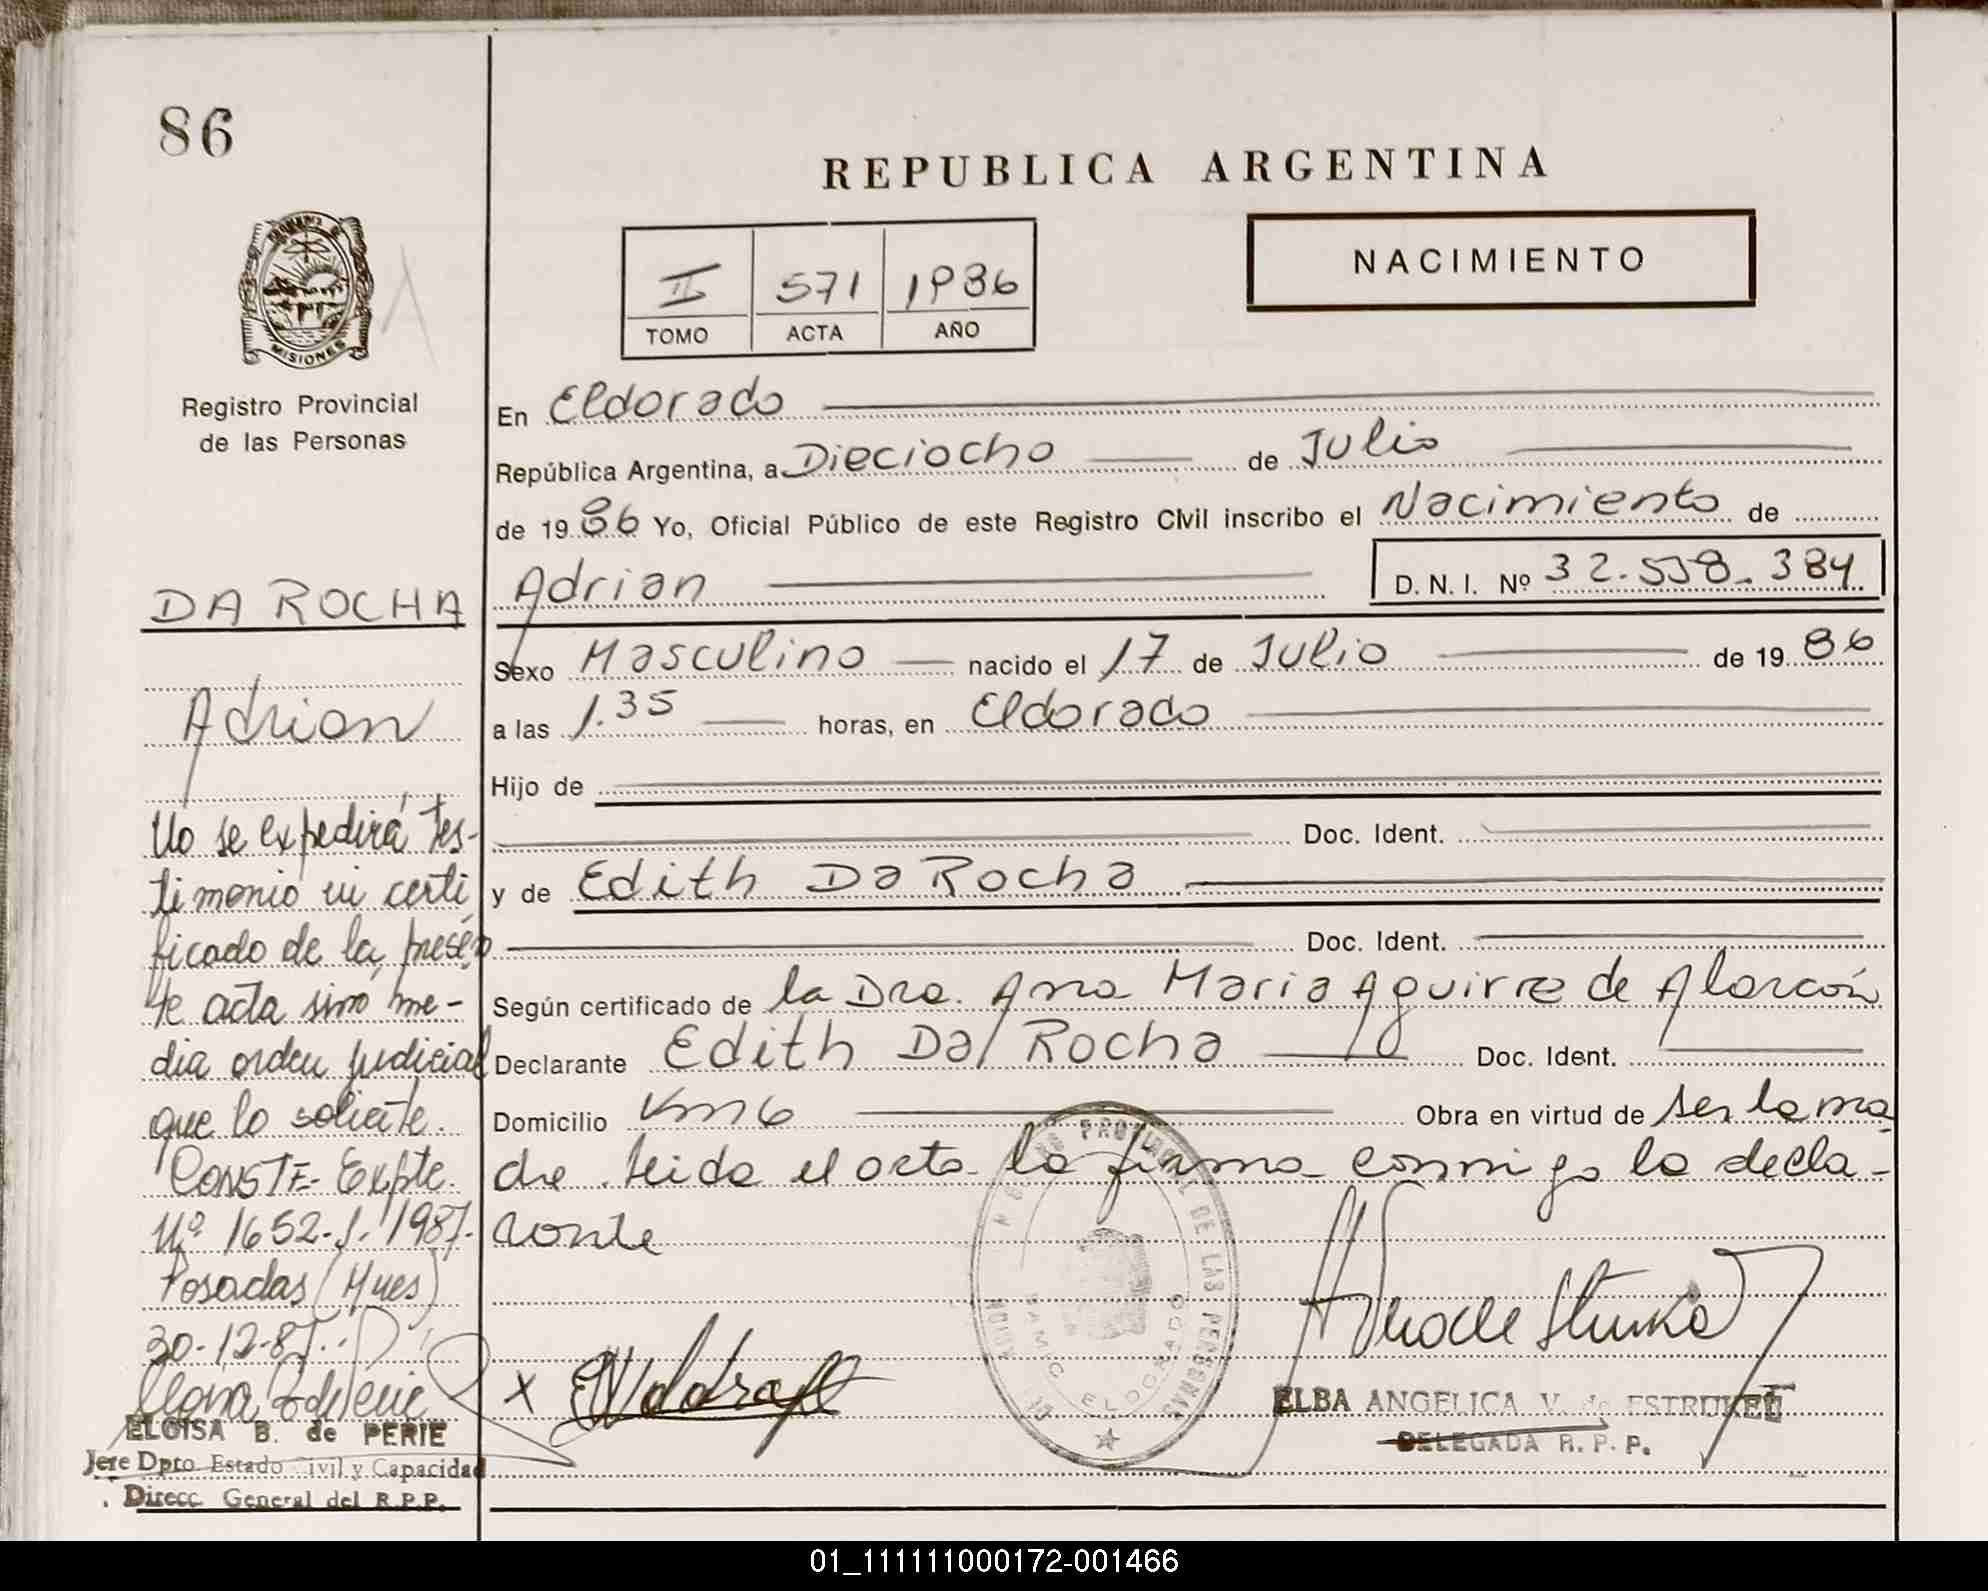 86
REPUBLICA ARGENTINA
NACIMIENTO
II 571 1986
TOMO ACTA AÑO
MISIONES
Registro Provincial
de las Personas
DA ROCHA
Adrian
No se expedirá tes-
timonio ni certi
ficado de la presen
te acta sino me-
dia orden judicial
que lo solicite.
CONSTE- Expte.
Nº 1652-J-1987-
Posadas (Mnes)
30-12-87.
ELOISA B. de PERIE
Jefe Dpto. Estado Civil y Capacidad
Direcc. General del R.P.P.
En Eldorado
República Argentina, a Dieciocho de Julio
de 1986 Yo, Oficial Público de este Registro Civil inscribo el Nacimiento de
Adrian D. N. I. Nº 32.558.384
Sexo Masculino nacido el 17 de Julio de 1986
a las 1.35 horas, en Eldorado
Hijo de
Doc. Ident.
y de Edith Da Rocha
Doc. Ident.
Según certificado de la Dra. Ana Maria Aguirre de Alarcón
Declarante Edith Da Rocha Doc. Ident.
Domicilio Km 6 Obra en virtud de ser la ma
dre. Leida el acta la firma conmigo la decla-
rante
PROVINCIAL DE LAS PERSONAS
ELDORADO
X
ELBA ANGELICA V. de ESTRUKEL
DELEGADA R. P. P.
01_111111000172-001466